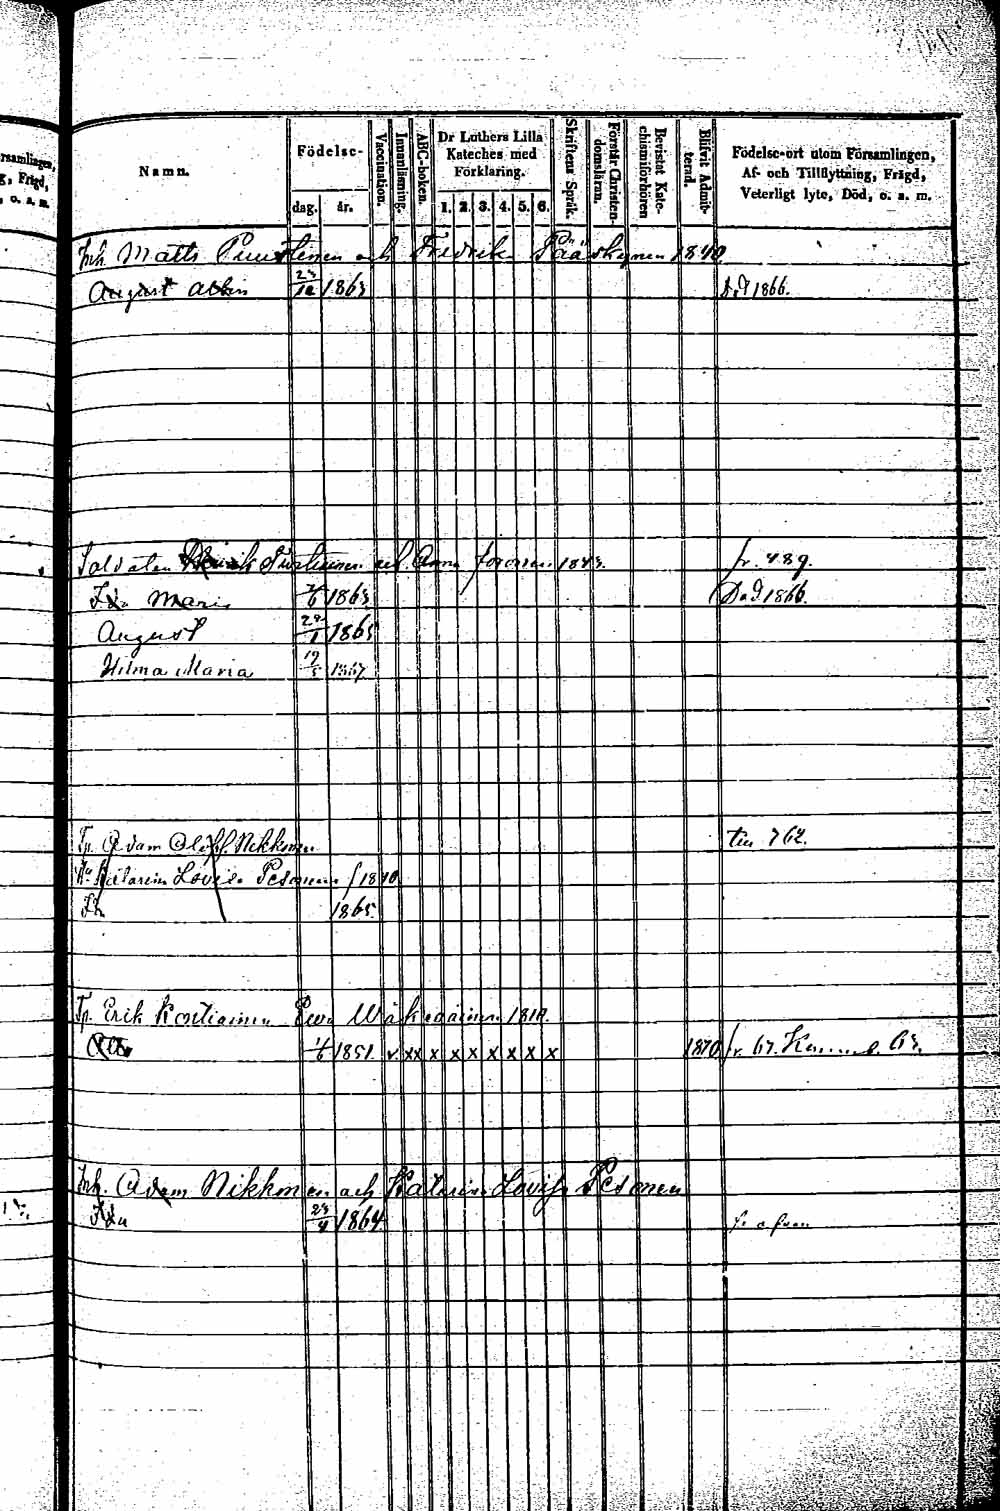 rsamlingen,
g, Frägd,
, o. a. m.
Namn.
Födelse-
dag. år.
Vaccination.
Innanläsning.
ABC-boken.
Dr Luthers Lilla
Kateches med
Förklaring.
1. 2. 3. 4. 5. 6.
Skriftens Språk.
Förstår Christen-
domsläran.
Bevistat Kate-
chismiförhören
Blifvit Admit-
terad.
Födelse-ort utom Församlingen,
Af- och Tillflyttning, Frägd,
Veterligt lyte, Död, o. a. m.
Inh. Matts och Fredrika Pääskynen 1840.
August Albin 23/12 1863 Död 1866.
Soldaten och Anna 1843. fr. 489.
Ida Maria 1863 Död 1866.
August 1865
Hilma Maria 19/5 1867
Tp. Adam Oloff. Nikkonen till 762.
Katarina Lovisa Pesonen 1840
1865.
Tp. Erik Kortiainen Eva 1818.
1851 v xx x x x x x x x 1870 fr. 67.
Inh. Adam Nikkonen och Katarina Lovisa Pesonen
Ida 23/4 1864